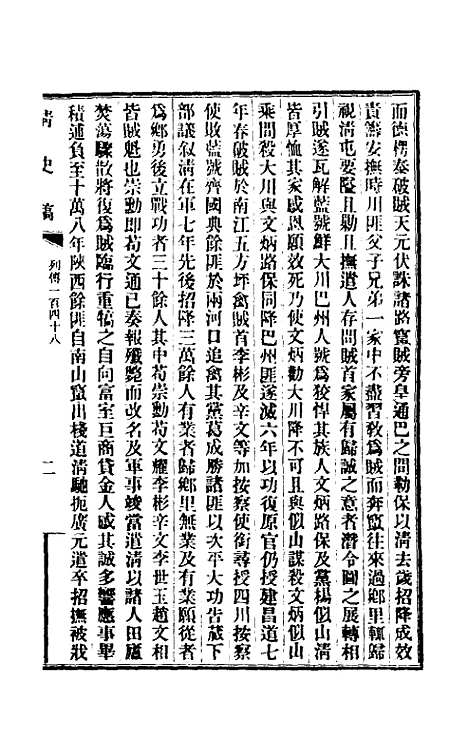 而德楞泰破賊天元伏誅諸路竄賊旁皇通巴之間勒保以清去歲招降成效
責籌安撫時川匪父子兄弟一家中不盡習敎爲賊而奔竄往來過鄉里輒歸
視清屯要隘且勦且撫遣人存問賊首家屬有歸誠之意者潛令圖之展轉相
引賊遂瓦解藍號鮮大川巴州人號爲狡悍其族人文炳路保及黨楊似山清
皆厚恤其家感恩願效死乃使文炳勸大川降不可且與似山謀殺文炳似山
乘間殺大川與文炳路保同降巴州匪遂滅六年以功復原官仍授建昌道七
年春破賊於南江五方坪禽賊首李彬及辛文等加按察使銜尋授四川按察
使敗藍號齊國典餘匪於兩河口追禽其黨葛成勝諸匪以次平大功告蕆下
部議敘清在軍七年先後招降三萬餘人有業者歸鄉里無業及有業願從者
爲鄉勇後立戰功者三十餘人其中苟崇勳苟文耀李彬辛文李世玉趙文相
皆賊魁也崇勳即苟文通已奏報殲斃而改名及軍事竣當遣清以諸人田廬
焚蕩驟散將復爲賊臨行重犒之自向富室巨商貸金人感其誠多響應事畢
積逋負至十萬八年陝西餘匪自南山竄出棧道清馳扼廣元遣卒招撫被戕
清史稿
列傳一百四十八
二